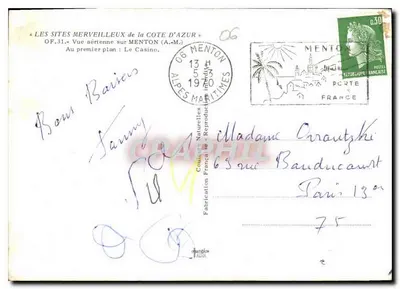 "LES SITES MERVEILLEUX de la COTE D'AZUR"
OF.31.- Vue aérienne sur MENTON (A.-M.)
Au premier plan : Le Casino.
06
06 MENTON
13 H
5-3
1970
ALPES MARITIMES
MENTON
PORTE
FRANCE
0,30
REPUBLIQUE FRANCAISE
Bons Baisers
Fanny
Madame
63 rue Baudricourt
Paris 13
75
Couleurs Naturelles
Fabrication Française - Reproduction
CPARAMA.COM